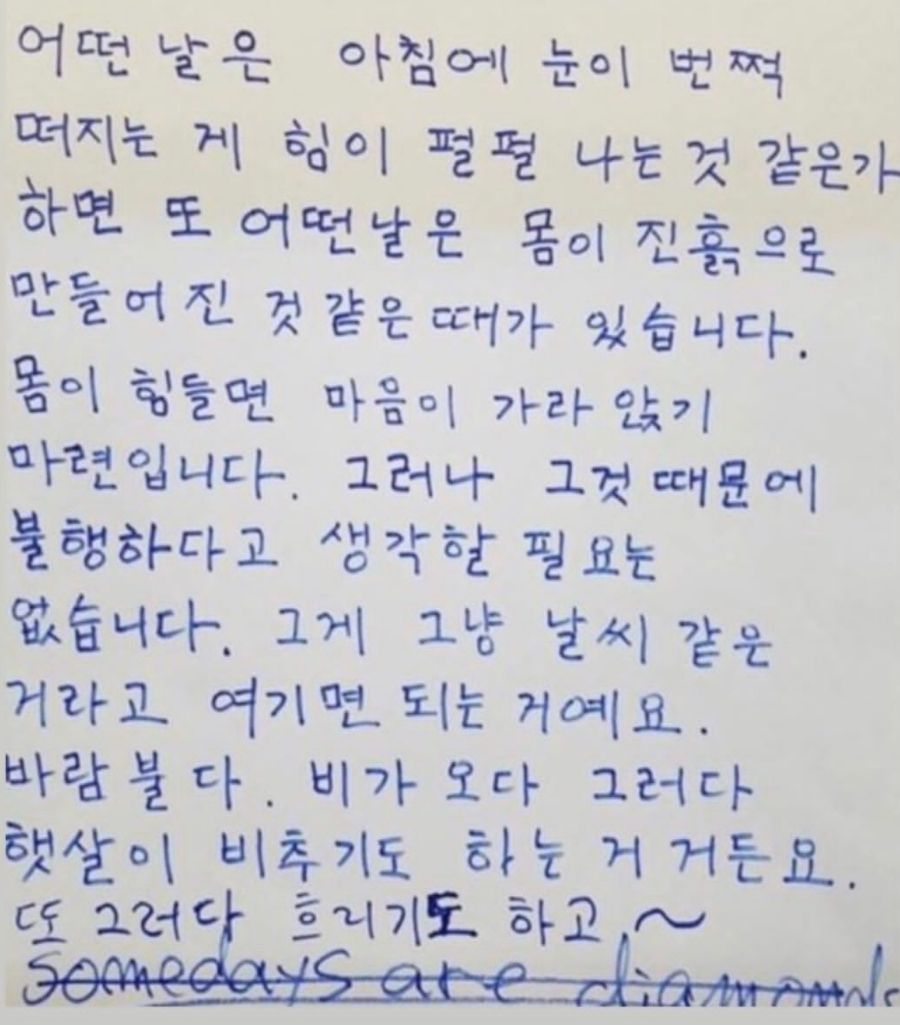 어떤 날은 아침에 눈이 번쩍
떠지는 게 힘이 펄펄 나는 것 같은가
하면 또 어떤날은 몸이 진흙으로
만들어 진 것 같은 때가 있습니다.
몸이 힘들면 마음이 가라 앉기
마련입니다. 그러나 그것 때문에
불행하다고 생각할 필요는
없습니다. 그게 그냥 날씨 같은
거라고 여기면 되는 거예요.
바람 불다. 비가 오다 그러다
햇살이 비추기도 하는 거 거든요.
또 그러다 흐리기도 하고.~
somedays are diamonds